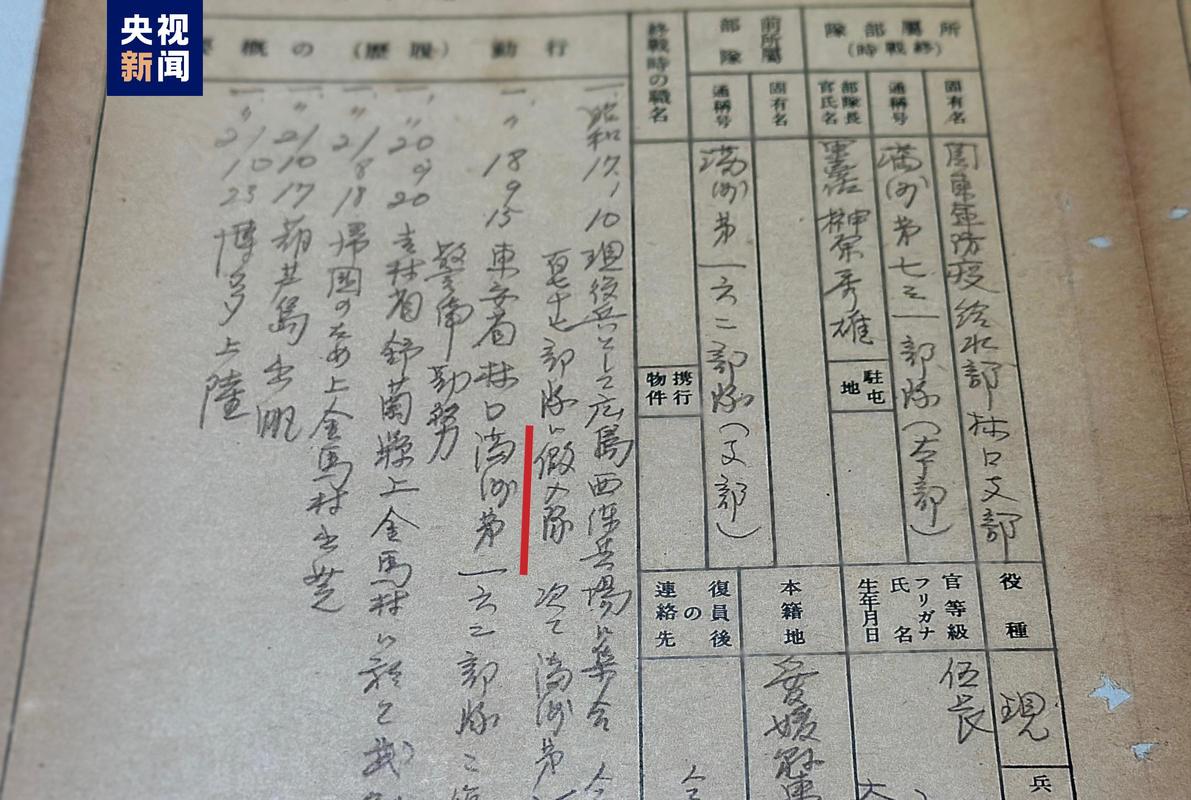 央视
新闻
所屬部隊
(終戰時)
固有名
関東軍防疫給水部林口支部
通稱号
満洲第七三一部隊(本部)
部隊長
官氏名
榊原秀雄
駐屯
地
前所屬
部隊
固有名
通稱号
満洲第一六二部隊(支部)
終戰時の職名
携行
物件
行動(履歴)の概要
一、昭和17、1、10 現役兵として広島西練兵場に集合
部隊に仮入隊 次て満洲第
一、〃 18 9 15 東安省林口満洲第一六二部隊ニ
警備勤務
一、〃 20 9 20 吉林省舒蘭縣上金馬村に於て武
一、〃 21 8 18 帰国のため上金馬村出発
一、〃 21 10 17 葫芦島出帆
一、〃 21 10 23 博多上陸
役種
現
兵
官等級
フリガナ
氏名
生年月日
伍長
本籍地
愛媛縣
復員後
の
連絡先